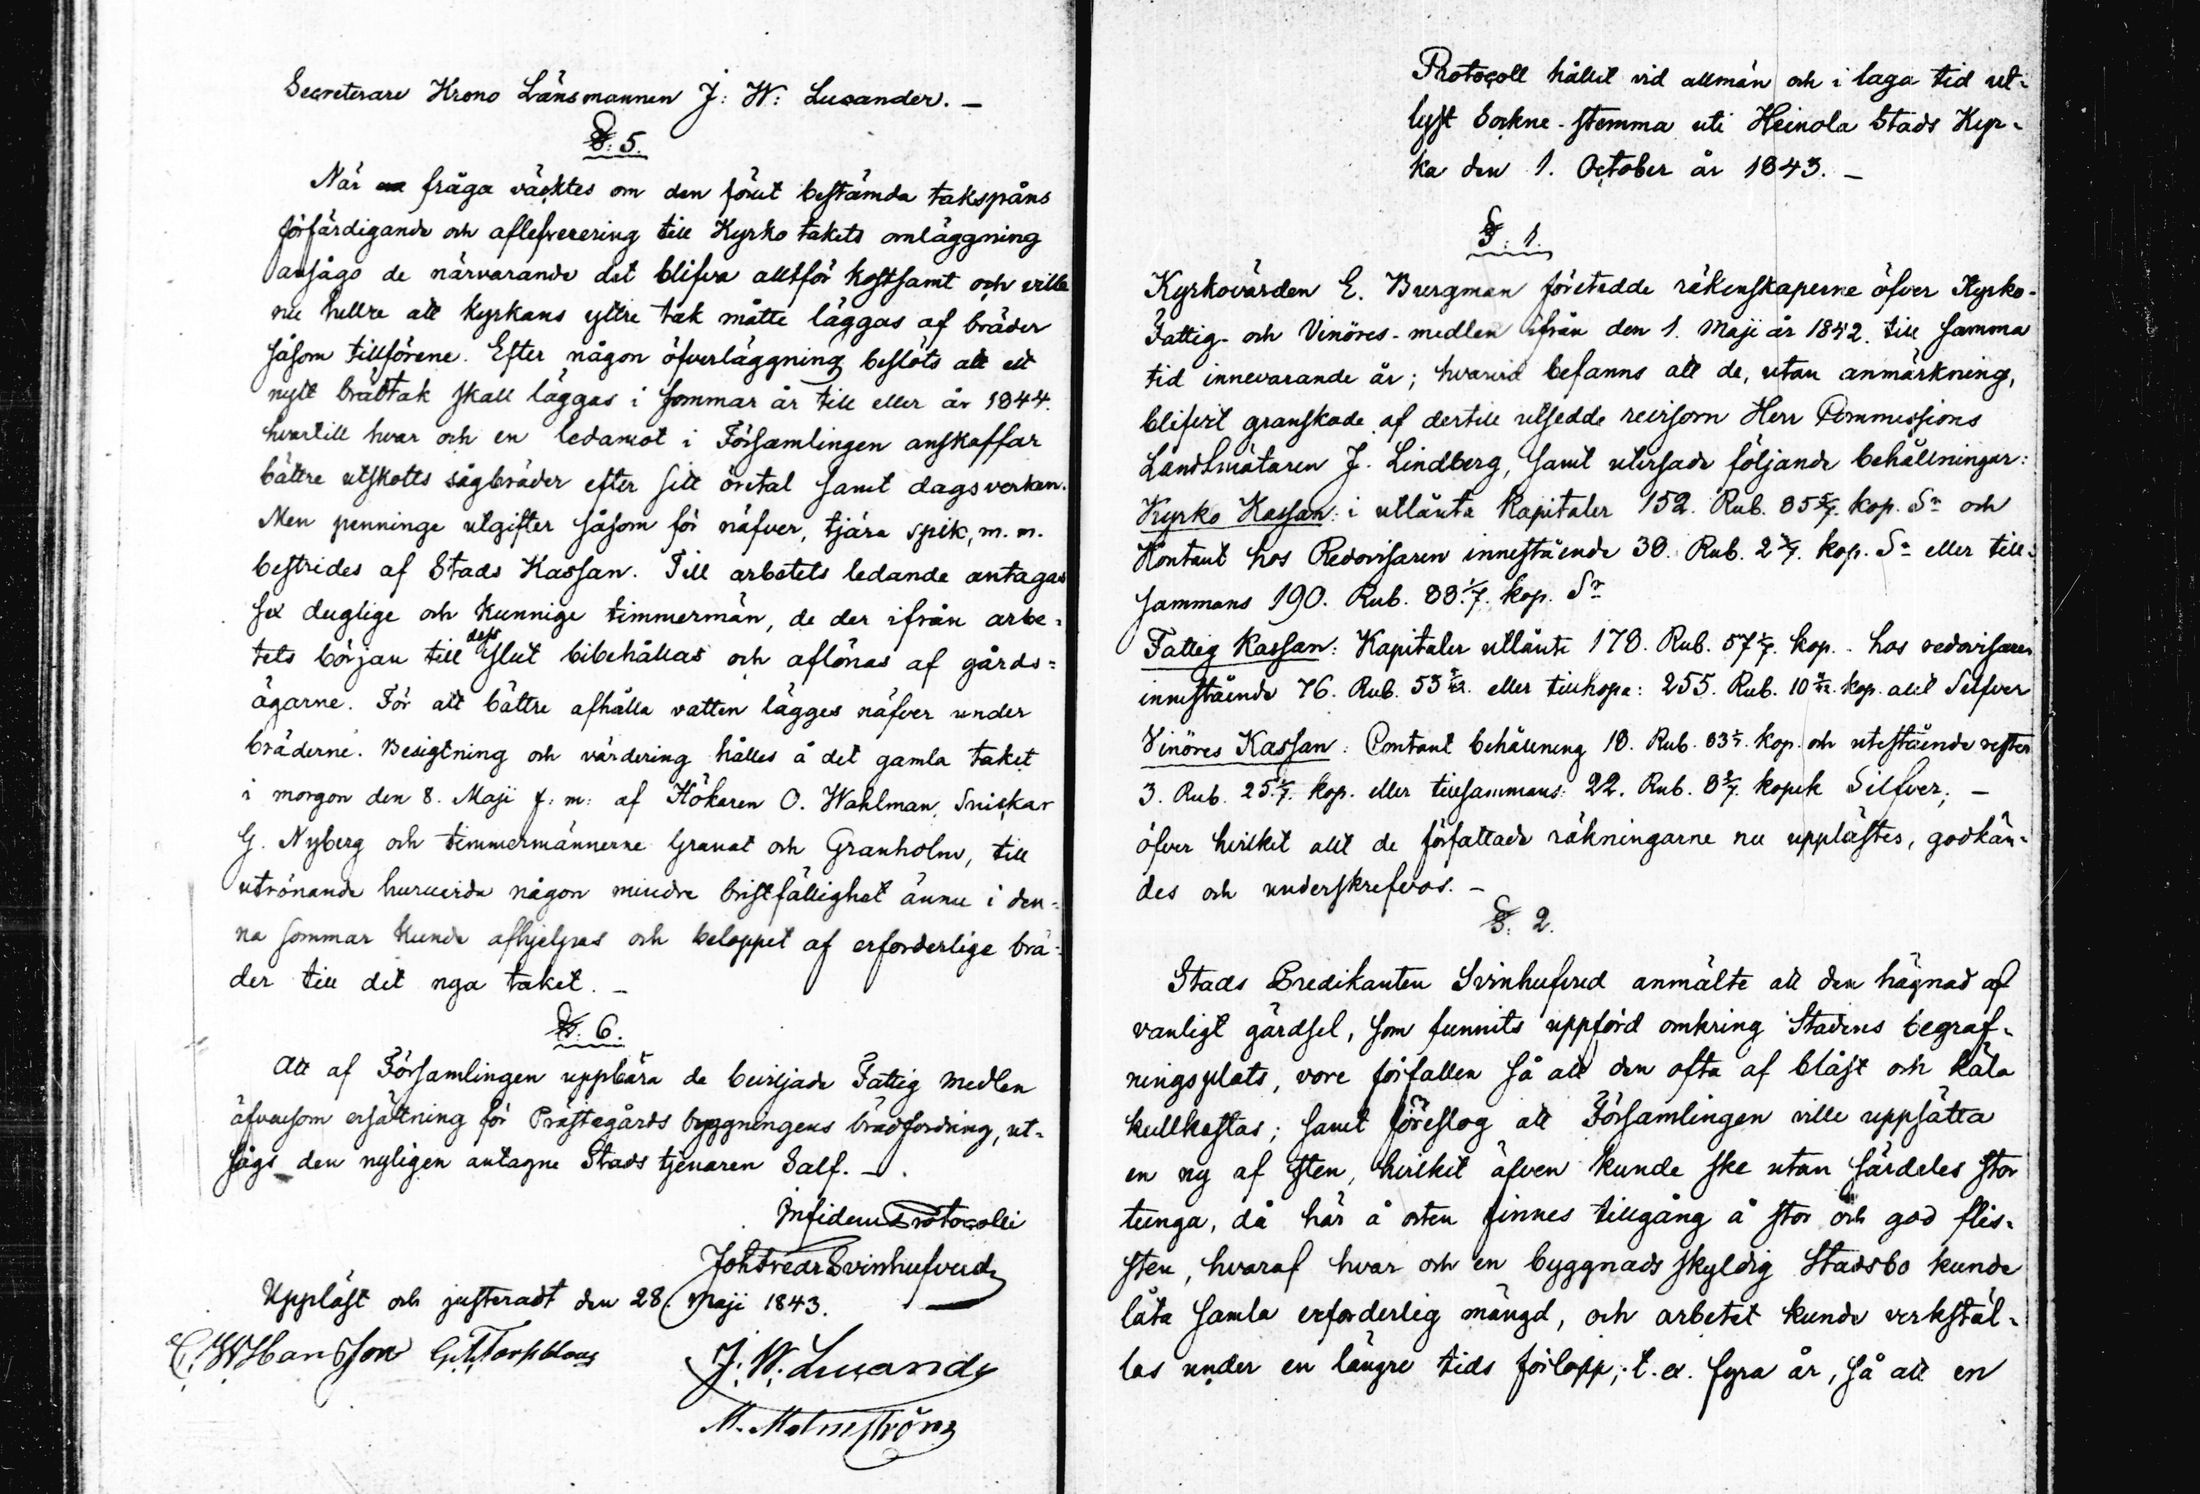 Secreterare Krono Länsmannen J: W: Lucander. –
§: 5.
När fråga väcktes om den förut bestämda takspåns
förfärdigande och aflefverering till Kyrko takets omläggning
ansågo de närvarande det blifva alltför kostsamt och ville
nu hellre att kyrkans yttre tak måtte läggas af bräder
såsom tillförene. Efter någon öfverläggning beslöts att ett
nytt brädtak skall läggas i sommar år till eller år 1844.
hvartill hvar och en ledamot i Församlingen anskaffar
bättre utskotts sågbräder efter sitt öretal samt dagsverken.
Men penninge utgifter såsom för näfver, tjära spik, m. m.
bestrides af Stads Kassan. Till arbetets ledande antagas
sex duglige och kunnige timmermän, de der ifrån arbe=
tets början till dess slut bibehållas och aflönas af gårds=
ägarne. För att bättre afhålla vatten lägges näfver under
bräderne. Besigtning och värdering hålles å det gamla taket
i morgon den 8. Maji f: m: af Hökaren O. Wahlman, Snickar
G. Nyberg och timmermännerne Granat och Granholm, till
utrönande huruvida någon mindre bristfällighet ännu i den=
na sommar kunde afhjelpas och beloppet af erforderlige brä=
der till det nya taket. –
§: 6.
Att af Församlingen uppbära de beviljade Fattig medlen
äfvensom ersättning för Prästegårds byggningens brädfordring, ut=
sågs den nyligen antagne Stads tjenaren Salf. –
In fidem Protocolli
Joh Fredr Svinhufvud
Uppläst och justeradt den 28. Maji 1843.
C. W Hansson
J. W. Lucander
M. Malmström
Protocoll hållit vid allmän och i laga tid ut=
lyst Sockne-stemma uti Heinola Stads Kyr=
ka den 1. October år 1843. –
§: 1.
Kyrkovärden E. Bergman företedde räkenskaperne öfver Kyrko-
Fattig- och Vinöres-medlen ifrån den 1. Maji år 1842. till samma
tid innevarande år; hvarvid befanns att de, utan anmärkning,
blifvit granskade af dertill utsedde revisorn Herr Commissions
Landtmätaren J. Lindberg, samt utvisade följande behållningar:
Kyrko Kassan: i utlånta Kapitaler 152. Rub. 85 5/7. kop. Sr och
Kontant hos Redovisaren innestående 38. Rub. 2 3/7. kop. Sr eller till=
sammans 190. Rub. 88 1/7. kop. Sr
Fattig Kassan: Kapitaler utlånte 178. Rub. 57 1/7. kop. - hos redovisaren
innestående 76. Rub. 53 eller tillhopa: 255. Rub. 10 kop. allt Silfver
Vinöres Kassan: Contant behållning 18. Rub. 83 kop. och utestående rester
3. Rub. 25 kop. eller tillsammans: 22. Rub. 8 kopek Silfver; –
öfver hvilket allt de författade räkningarne nu upplästes, godkän=
des och underskrefvos. –
§: 2.
Stads Predikanten Svinhufvud anmälte att den hägnad af
vanligt gärdsel, som funnits uppförd omkring Stadens begraf=
ningsplats, vore förfallen så att den ofta af blåst och käla
kullkastas; samt föreslog att Församlingen ville uppsätta
en ny af sten, hvilket äfven kunde ske utan särdeles stor
tunga, då här å orten finnes tillgång å stor och god flis=
sten, hvaraf hvar och en byggnads skyldig Stadsbo kunde
låta samla erforderlig mängd, och arbetet kunde verkstäl=
las under en längre tids förlopp; t. ex. fyra år, så att en